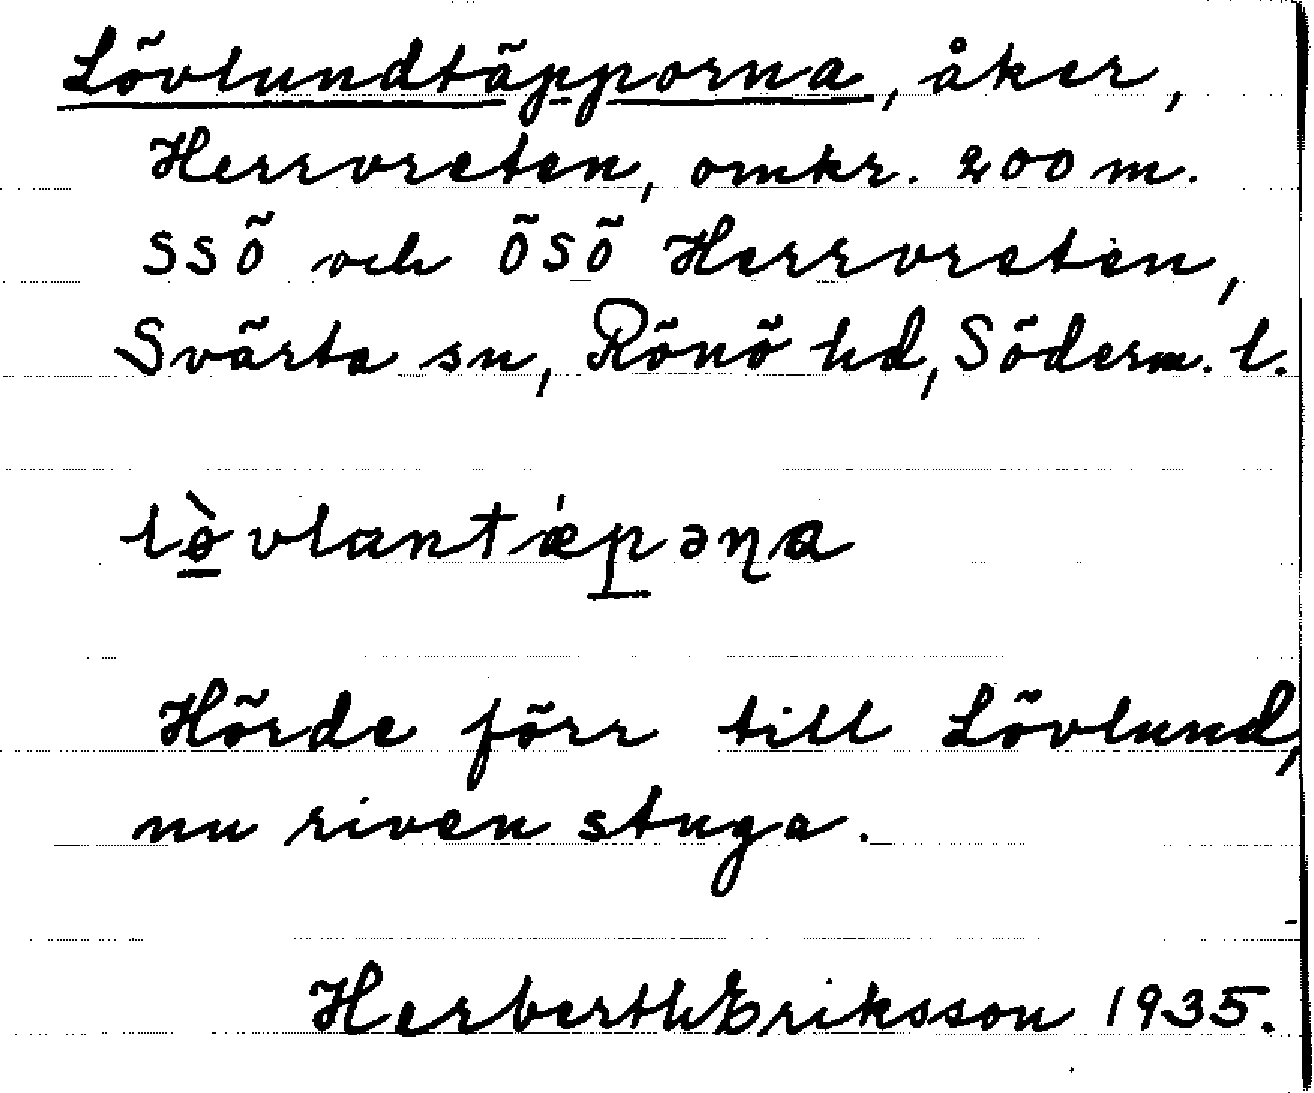 Lövlundtäpporna, åker,
Herrvreten, omkr. 200 m.
SSÖ och ÖSÖ Herrvreten,
Svärta sn, Rönö hd, Söderm. l.
lö̀vlantǽpəɳa
Hörde förr till Lövlund,
nu riven stuga.
Herberth Eriksson 1935.